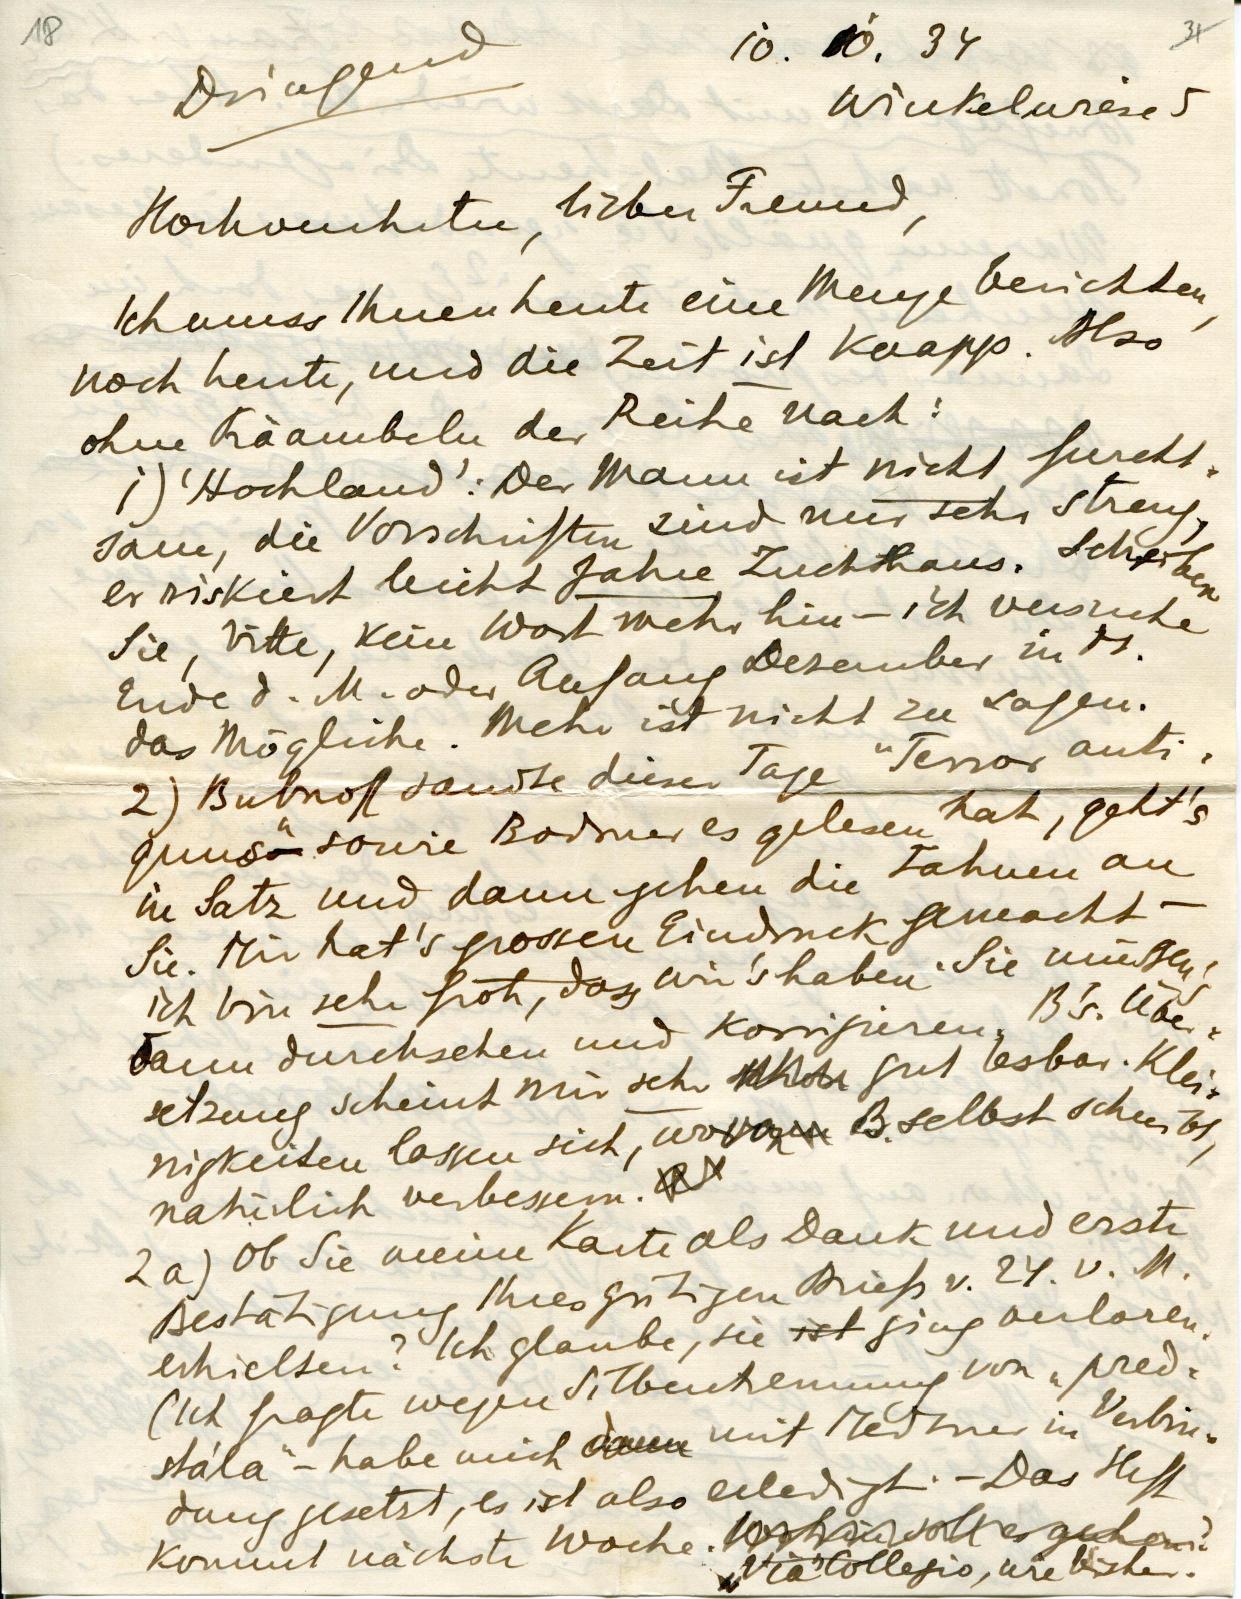 18
34
Dringend
10. 10. 34
Winkelwiese 5
Hochverehrter, lieber Freund,
Ich muss Ihnen heute eine Menge berichten,
noch heute, und die Zeit ist knapp. Also
ohne Präambeln der Reihe nach:
1) 'Hochland': Der Mann ist nicht furcht-
sam, die Vorschriften sind nur sehr streng,
er riskiert leicht Jahre Zuchthaus. Schreiben
Sie, bitte, kein Wort mehr hin – ich versuche
Ende d. M. oder Anfang Dezember in
das Mögliche. Mehr ist nicht zu sagen.
2) Bubnoff sandte dieser Tage "Terror anti-
quus" sowie Bodmer es gelesen hat, geht's
in Satz und dann gehen die Fahnen an
Sie. Mir hat's grossen Eindruck gemacht –
ich bin sehr froh, dass wir's haben. Sie müssen's
dann durchsehen und korrigieren. B's. Über-
setzung scheint mir sehr gut lesbar. Klei-
nigkeiten lassen sich, wovon B. selbst schreibt,
natürlich verbessern.
2a) Ob Sie meine Karte als Dank und erste
Bestätigung Ihres gütigen Briefs v. 24. v. M.
erhielten? Ich glaube, sie ist ging verloren.
(Ich fragte wegen Silbentrennung von „pred-
stála" – habe mich dann mit Medtner in Verbin-
dung gesetzt, es ist also erledigt. – Das Heft
kommt nächste Woche. Wohin soll es gehen?
„Via" Collegio, wie bisher.